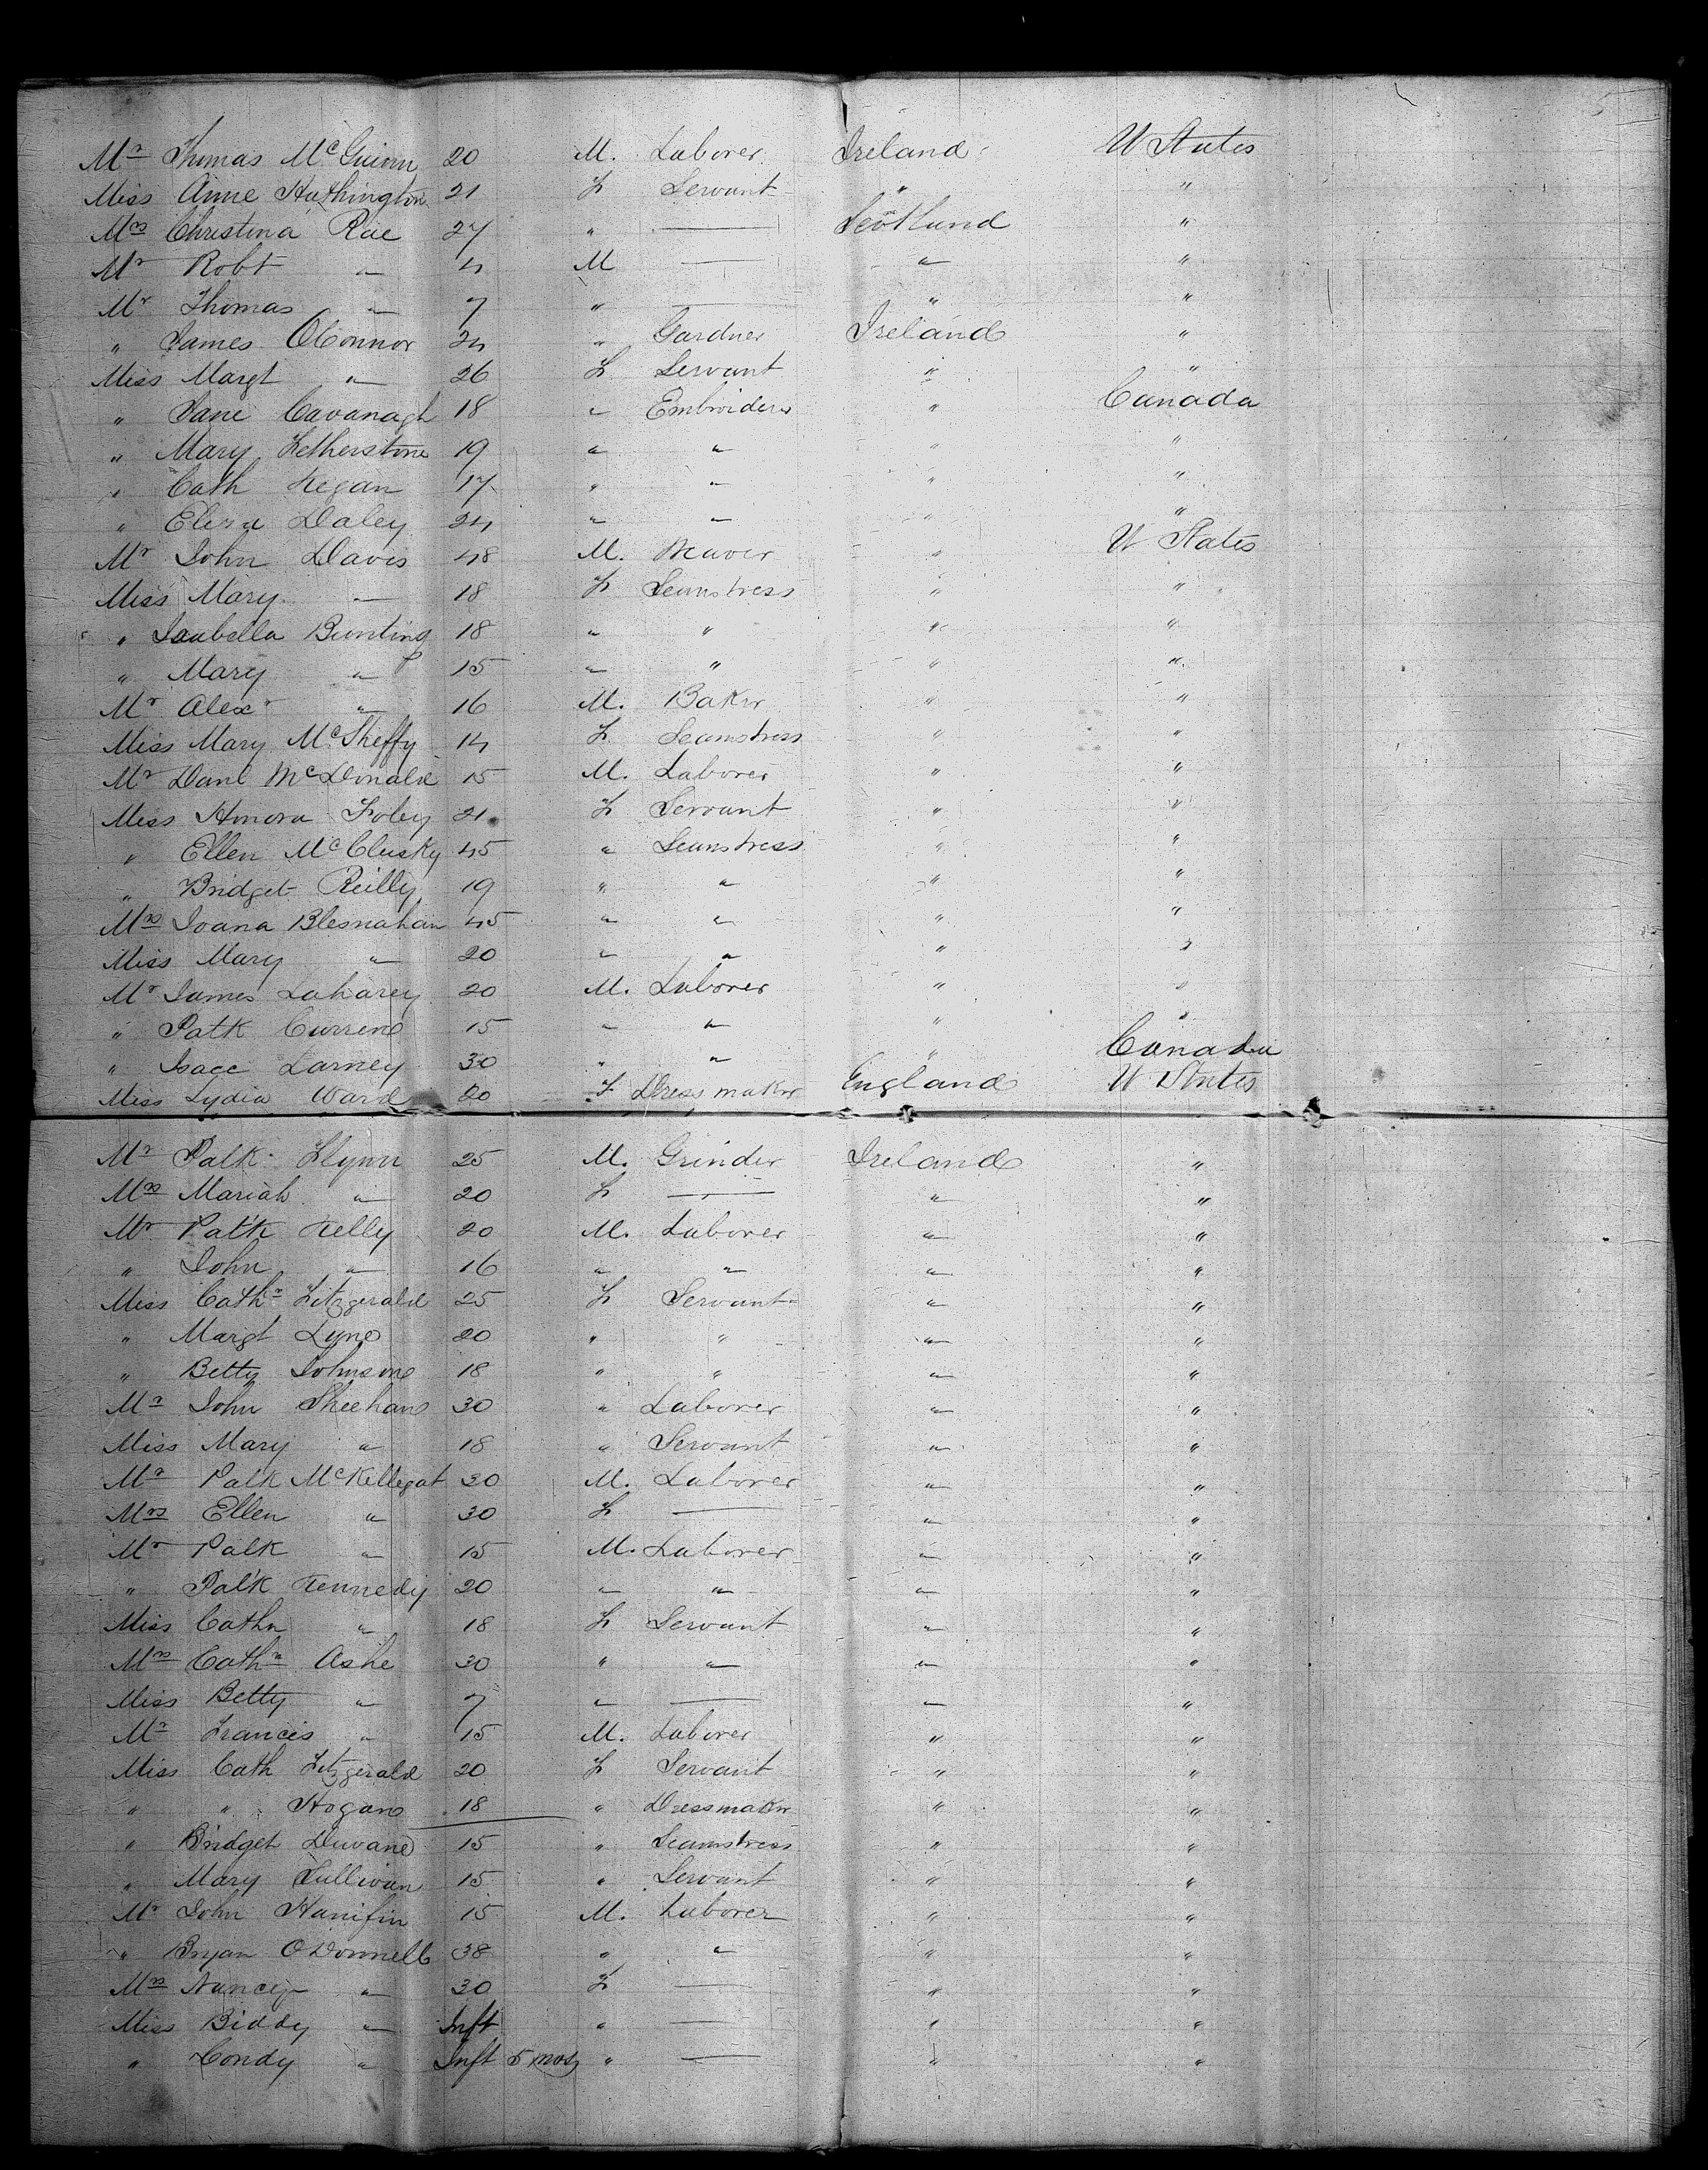 Mr Thomas McGuinn 20 M. Laborer Ireland U States
Miss Anne Huthington 21 F Servant " "
Mrs Christina Rae 27 " — Scotland "
Mr Robt " 4 M — " "
Mr Thomas " 7 " — " "
" James OConnor 24 " Gardner Ireland "
Miss Margt " 26 F Servant " "
" Jane Cavanagh 18 " Embroider " Canada
" Mary Fetherstone 19 " " " "
" Cath Kegan 17 " " " "
" Eliza Daley 24 " " " "
Mr John Davis 48 M. Weaver " U States
Miss Mary — 18 F Seamstress " "
" Isabella Bunting 18 " " " "
" Mary " 15 " " " "
Mr Alexr " 16 M. Baker " "
Miss Mary McSheffy 14 F Seamstress " "
Mr Danl McDonald 15 M. Laborer " "
Miss Honora Foley 21 F Servant " "
" Ellen McClusky 45 " Seamstress " "
" Bridget Reilly 19 " " " "
Mrs Joana Blesnahan 45 " " " "
Miss Mary " 20 " " " "
Mr James Laharey 20 M. Laborer " "
" Patk Curren 15 " " " "
" Isacc Larney 30 " " " Canada
Miss Lydia Ward 20 F Dressmaker England U States
Mr Patk Flynn 25 M. Grinder Ireland "
Mrs Mariah " 20 F — " "
Mr Patk Kelly 20 M. Laborer " "
" John " 16 " " " "
Miss Cathn Fitzgerald 25 F Servant " "
" Margt Lyne 20 " " " "
" Betty Johnson 18 " " " "
Mr John Sheehan 30 " Laborer " "
Miss Mary " 18 " Servant " "
Mr Patk McKellegat 30 M. Laborer " "
Mrs Ellen " 30 F — " "
Mr Patk " 15 M. Laborer " "
" Patk Kennedy 20 " " " "
Miss Cathn " 18 F Servant " "
Mrs Cathn Ashe 30 " " " "
Miss Betty " 7 " — " "
Mr Francis " 15 M. Laborer " "
Miss Cath Fitzgerald 20 F Servant " "
" " Hogan 18 " Dressmaker " "
" Bridget Duvane 15 " Seamstress " "
" Mary Sullivan 15 " Servant " "
Mr John Hanifin 15 M. Laborer " "
" Bryan O'Donnell 38 " " " "
Mrs Nancy " 30 F — " "
Miss Biddy " Inft " — " "
" Condy " Inft 5 mos " — " "